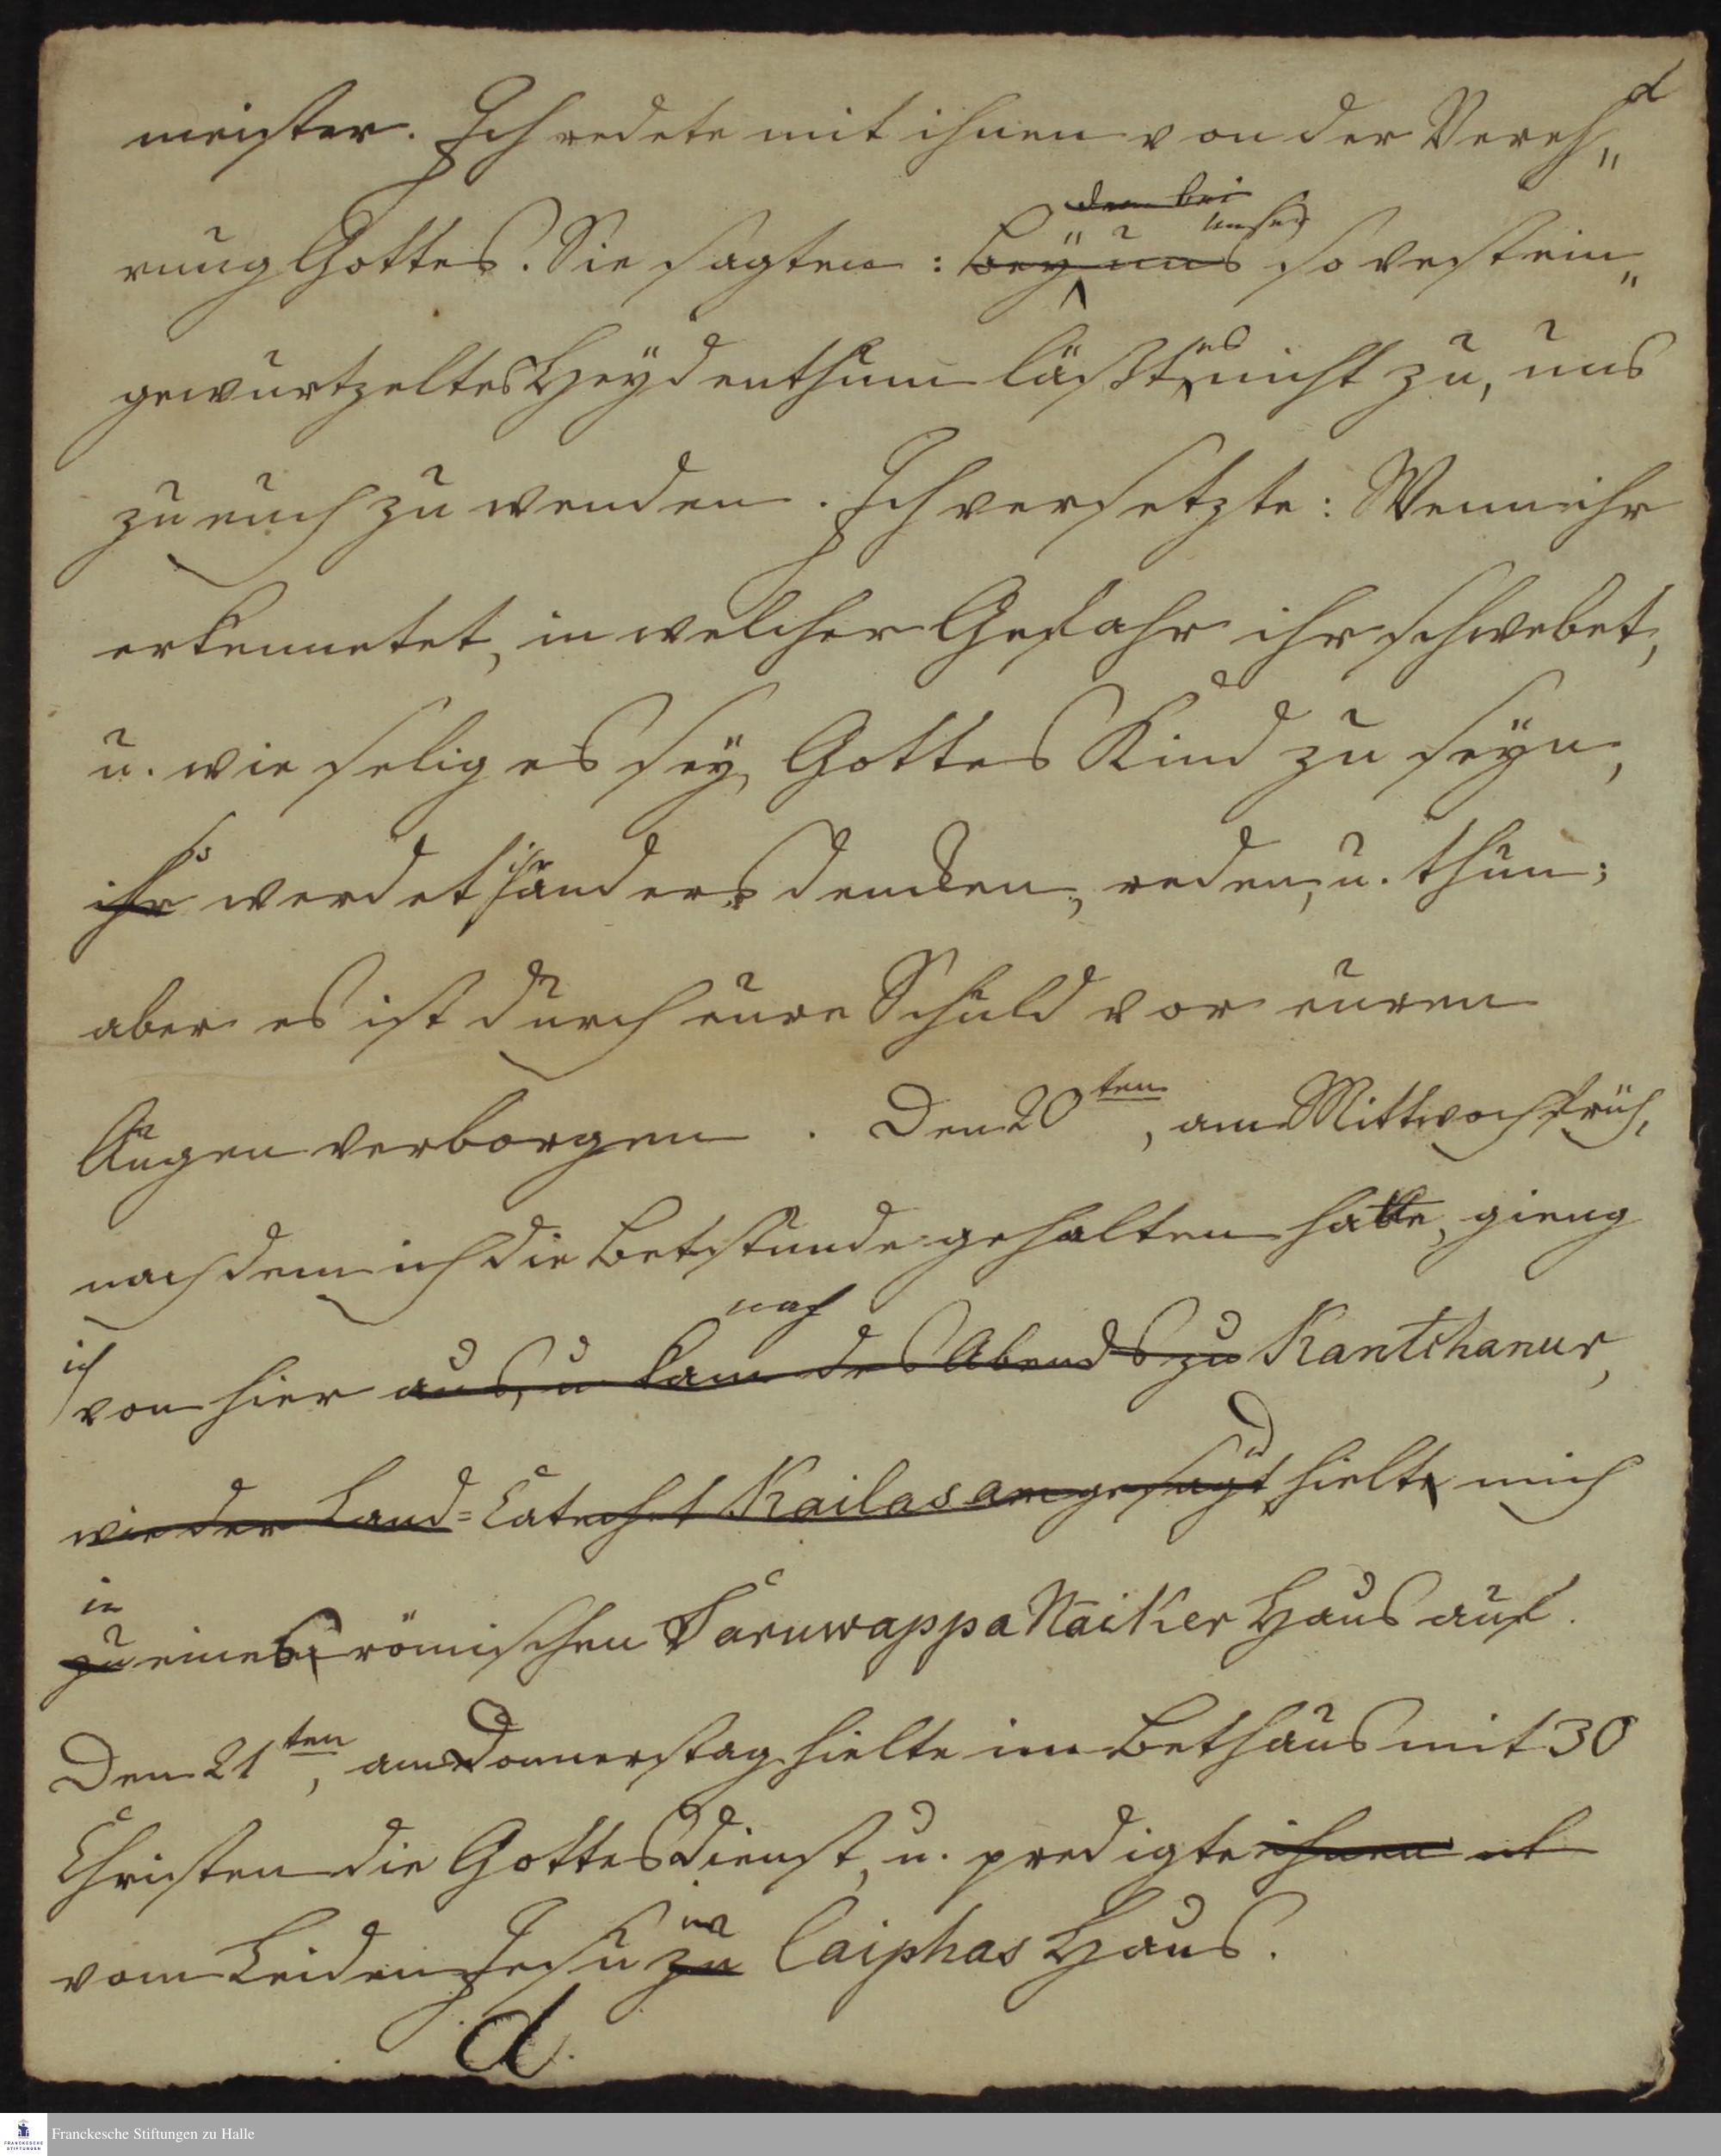 meister. Ich redete mit ihnen von der Vereh„
den bei
unser
rung Gottes. Sie sagten: Beÿ uns so vest ein„
es
gewurtzeltes Heÿdenthum läßt nicht zu, uns
zu euch zu wenden. Ich versetzte: Wenn ihr
erkennetet, in welcher Gefahr ihr schwebet,
u. wie selig es seÿ, Gottes Kind zu seÿn,
so ihr
ihr werdet anders dencken, reden, u. thun;
aber es ist durch eure Schuld vor euren
Augen verborgen. Den 20ten, am Mittwoch früh,
nachdem ich die Betstunde gehalten hatte, gieng
ich nach
von hier aus, u. kam des Abends zu Kantchanur,
wie der Land=Catechet Kailasam gesagt hielte mich
in
zu eines römischen Saruwappa Naiker Haus auf.
Den 21ten, am Donnerstag hielte im Bethaus mit 30
Christen die Gottesdienst, u. predigte ihnen
in
vom Leiden Jesu zu Caiphas Haus.
d
Franckesche Stiftungen zu Halle